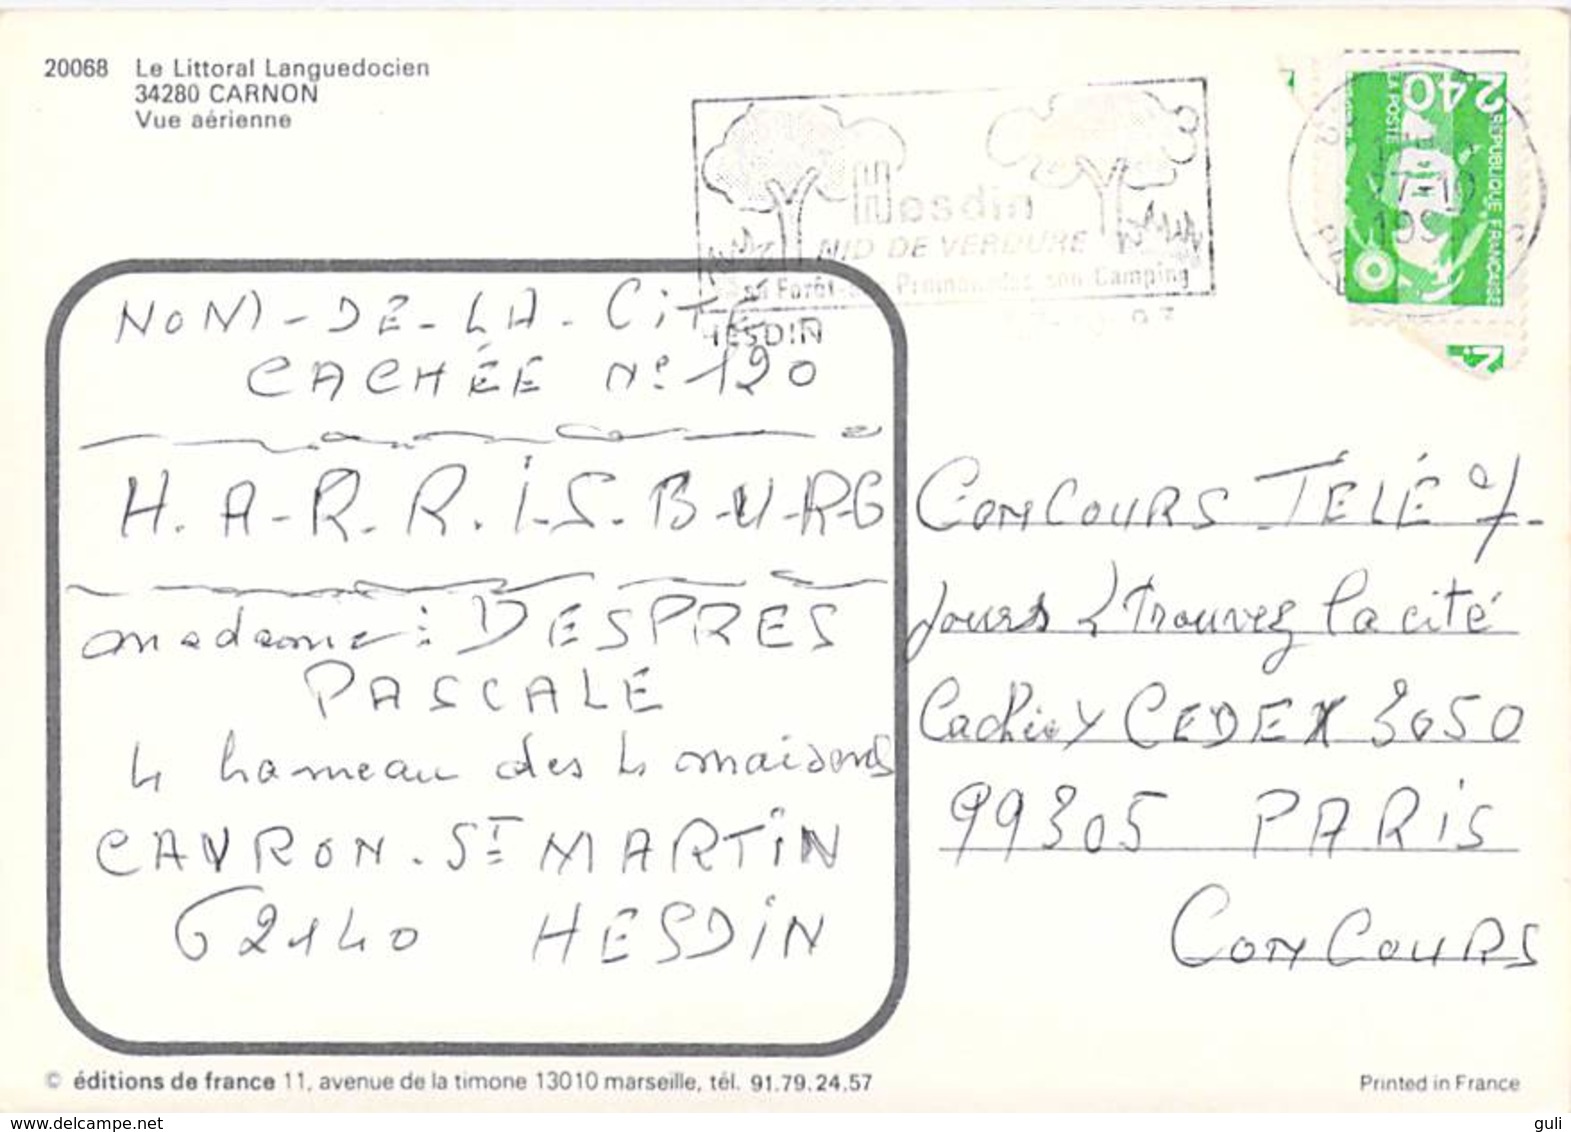 20068 Le Littoral Languedocien
34280 CARNON
Vue aérienne
Hesdin
NID DE VERDURE
sa Forêt son Camping
HESDIN
2,40
LA POSTE
REPUBLIQUE FRANÇAISE
NOM - DE - LA - CITÉ
CACHÉE N° 190
H. A - R - R. i - S - B - U - R - G
madame : DESPRES
PASCALE
4 hameau des 4 maisons
CAVRON - ST MARTIN
62140 HESDIN
CONCOURS TÉLÉ 7
Jours trouvez la cité
Cachée CEDEX 3050
99305 PARIS
CONCOURS
© éditions de france 11, avenue de la timone 13010 marseille, tél. 91.79.24.57
Printed in France
www.delcampe.net
guli